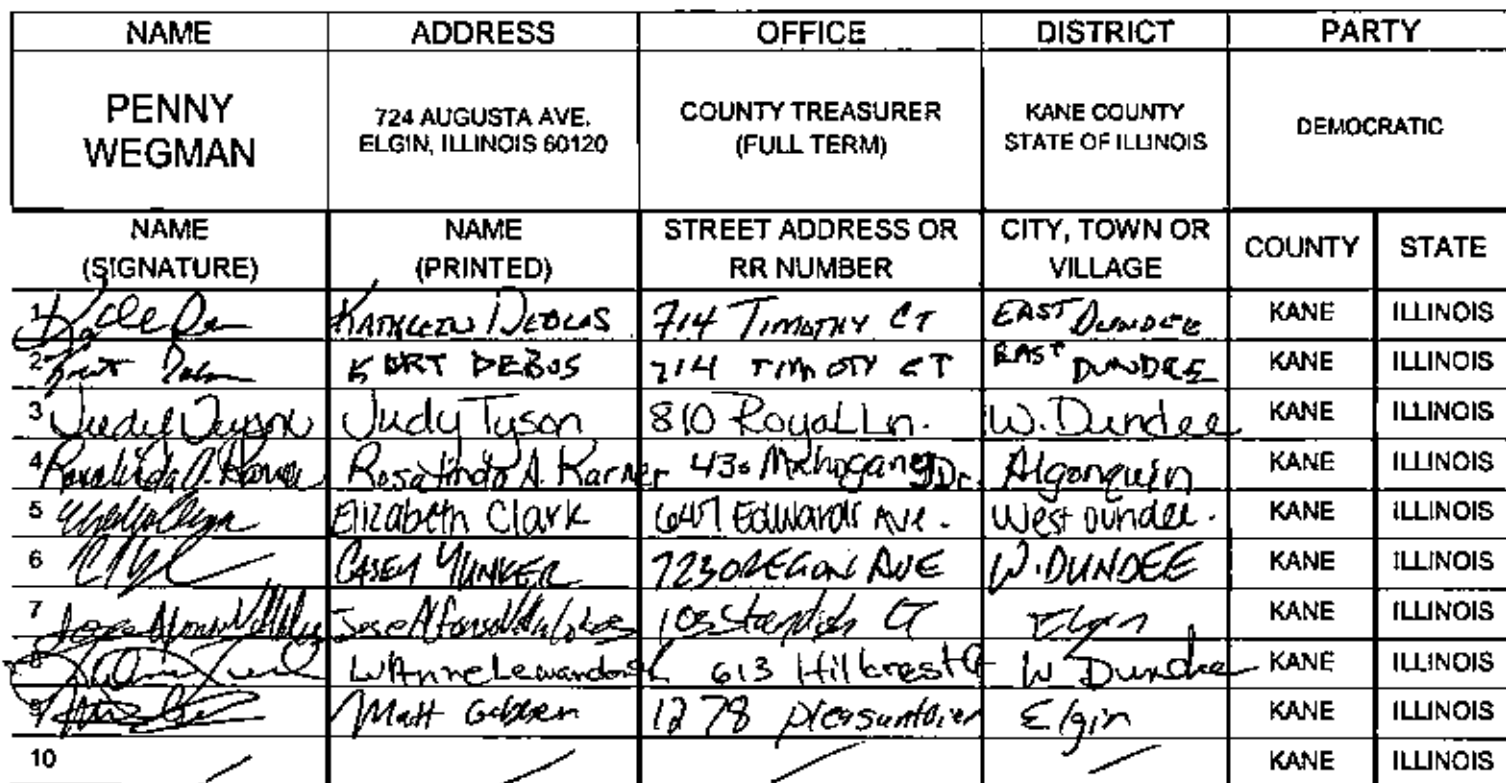 NAME ADDRESS OFFICE DISTRICT PARTY
PENNY WEGMAN 724 AUGUSTA AVE. ELGIN, ILLINOIS 60120 COUNTY TREASURER (FULL TERM) KANE COUNTY STATE OF ILLINOIS DEMOCRATIC
NAME (SIGNATURE) NAME (PRINTED) STREET ADDRESS OR RR NUMBER CITY, TOWN OR VILLAGE COUNTY STATE
1 KATHLEEN 714 TIMOTHY CT EAST DUNDEE KANE ILLINOIS
2 KURT DEBUS 714 TIMOTY CT EAST DUNDEE KANE ILLINOIS
3 Judy Tyson Judy Tyson 810 Royal Ln. W. Dundee KANE ILLINOIS
4 Rosalinda A. Karner Rosalinda A. Karner 430 Mahogany Dr. Algonquin KANE ILLINOIS
5 Elizabeth Clark 647 Edwards Ave. West Dundee. KANE ILLINOIS
6 CASEY YUNKER 723 OREGON AVE W. DUNDEE KANE ILLINOIS
7 Jose Alfonso 105 Standish CT Elgin KANE ILLINOIS
8 613 Hillcrest W Dundee KANE ILLINOIS
9 Matt 1278 Elgin KANE ILLINOIS
10 KANE ILLINOIS